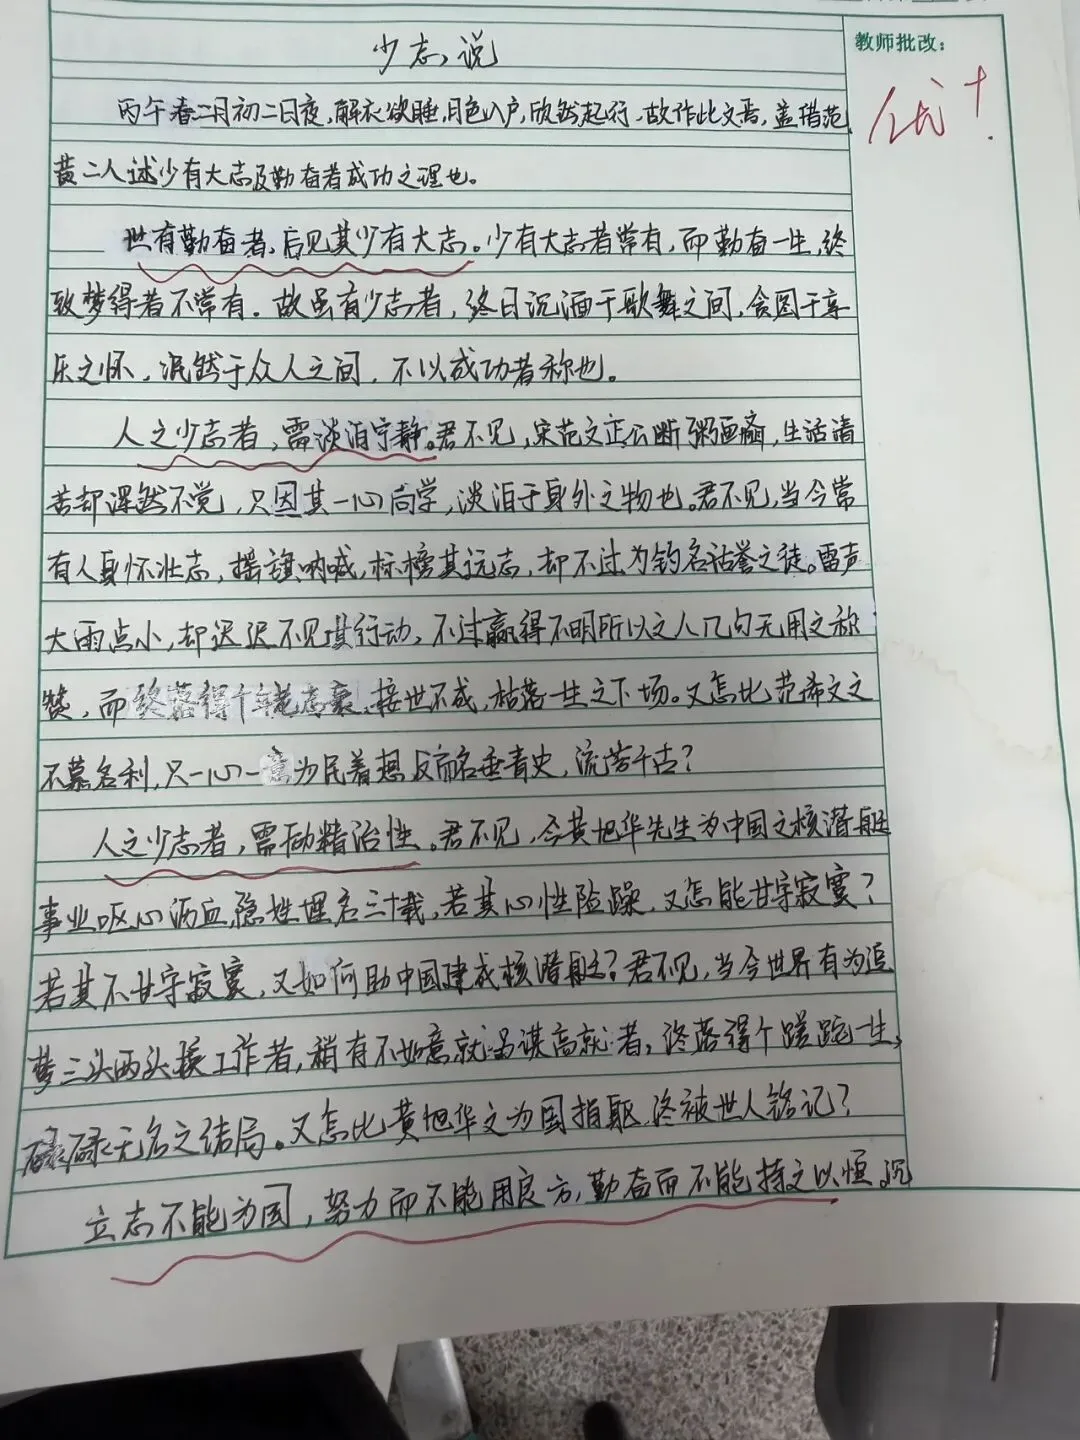 少志说
教师批改：
优+
丙午春二月初二日夜，解衣欲睡，月色入户，欣然起行，故作此文焉，盖借范
黄二人述少有大志及勤奋者成功之理也。
世有勤奋者，后见其少有大志。少有大志者常有，而勤奋一生，终
致梦得者不常有。故虽有少志者，终日沉湎于歌舞之间，贪图于享
乐之怀，泯然于众人之间，不以成功者称也。
人之少志者，需淡泊宁静。君不见，宋范文正公断粥画齑，生活清
苦却浑然不觉，只因其一心向学，淡泊于身外之物也。君不见，当今常
有人身怀壮志，摇旗呐喊，标榜其远志，却不过为钓名沽誉之徒。雷声
大雨点小，却迟迟不见其行动，不过赢得不明所以之人几句无用之称
赞，而终落得个年老志衰，接世不成，枯落一生之下场。又怎比范希文之
不慕名利，只一心一意为民着想反而名垂青史，流芳千古？
人之少志者，需励精治性。君不见，今黄旭华先生为中国之核潜艇
事业呕心沥血，隐姓埋名三十载，若其心性险躁，又怎能甘守寂寞？
若其不甘守寂寞，又如何助中国建成核潜艇？君不见，当今世界有为追
梦三头两头换工作者，稍有不如意就另谋高就者，终落得个蹉跎一生，
碌碌无名之结局。又怎比黄旭华之为国捐躯，终被世人铭记？
立志不能为国，努力而不能用良方，勤奋而不能持之以恒。沉